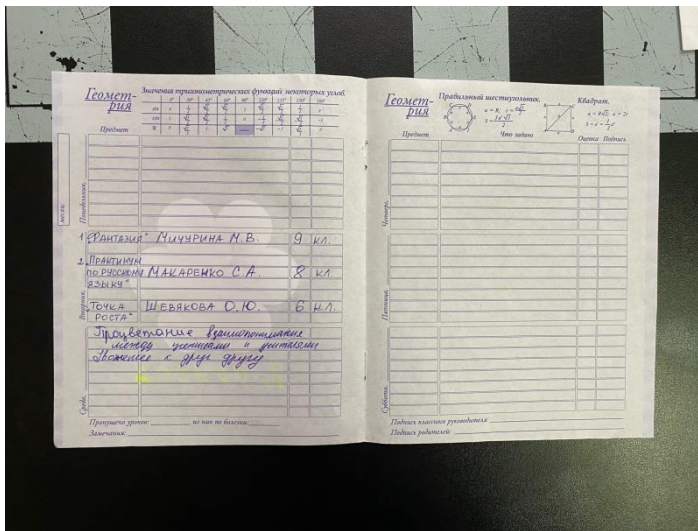 Геомет-
рия
Значения тригонометрических функций некоторых углов.
0° 30° 45° 60° 90° 120° 135° 150° 180°
Предмет
месяц
Понедельник,
1 „Фантазия" Мичурина М.В. 9 кл.
2. „Практикум
по русскому Макаренко С.А. 8 кл
языку"
Вторник,
„Точка Шевякова О.Ю. 6 кл.
роста"
Процветание взаимопонимания
между учениками и учителями
Уважение к друг другу
Среда,
Пропущено уроков: из них по болезни:
Замечания:
Геомет-
рия
Правильный шестиугольник.
Квадрат.
Предмет Что задано Оценка Подпись
Четверг,
Пятница,
Суббота,
Подпись классного руководителя:
Подпись родителей: